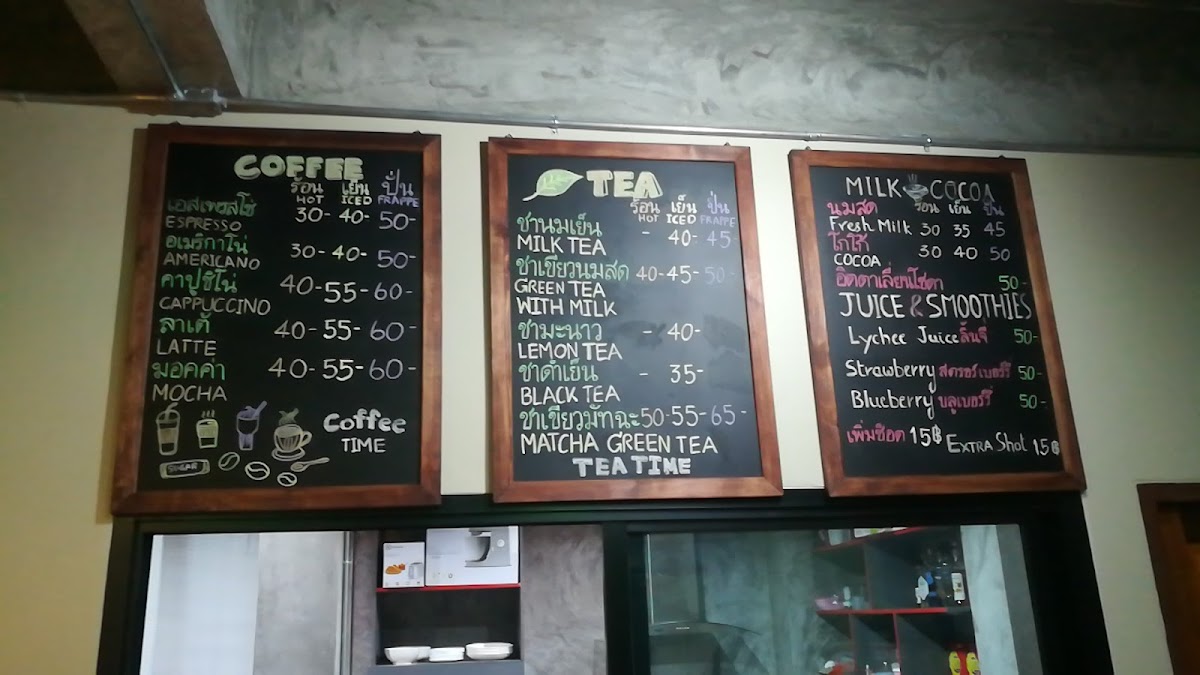 COFFEE
ร้อน เย็น ปั่น
HOT ICED FRAPPE
เอสเพรสโซ่ 30- 40- 50-
ESPRESSO
อเมริกาโน่ 30- 40- 50-
AMERICANO
คาปูชิโน่ 40- 55- 60-
CAPPUCCINO
ลาเต้ 40- 55- 60-
LATTE
มอคค่า 40- 55- 60-
MOCHA
Coffee
TIME
SUGAR
TEA
ร้อน เย็น ปั่น
HOT ICED FRAPPE
ชานมเย็น - 40- 45-
MILK TEA
ชาเขียวนมสด 40- 45- 50-
GREEN TEA
WITH MILK
ชามะนาว - 40-
LEMON TEA
ชาดำเย็น - 35-
BLACK TEA
ชาเขียวมัทฉะ 50- 55- 65-
MATCHA GREEN TEA
TEA TIME
MILK COCOA
นมสด ร้อน เย็น ปั่น
Fresh Milk 30 35 45
โกโก้
COCOA 30 40 50
อิตตาเลี่ยนโซดา 50-
JUICE & SMOOTHIES
Lychee Juice ลิ้นจี่ 50-
Strawberry สตรอว์เบอร์รี่ 50-
Blueberry บลูเบอร์รี่ 50-
เพิ่มช็อต 15฿ EXTRA Shot 15฿